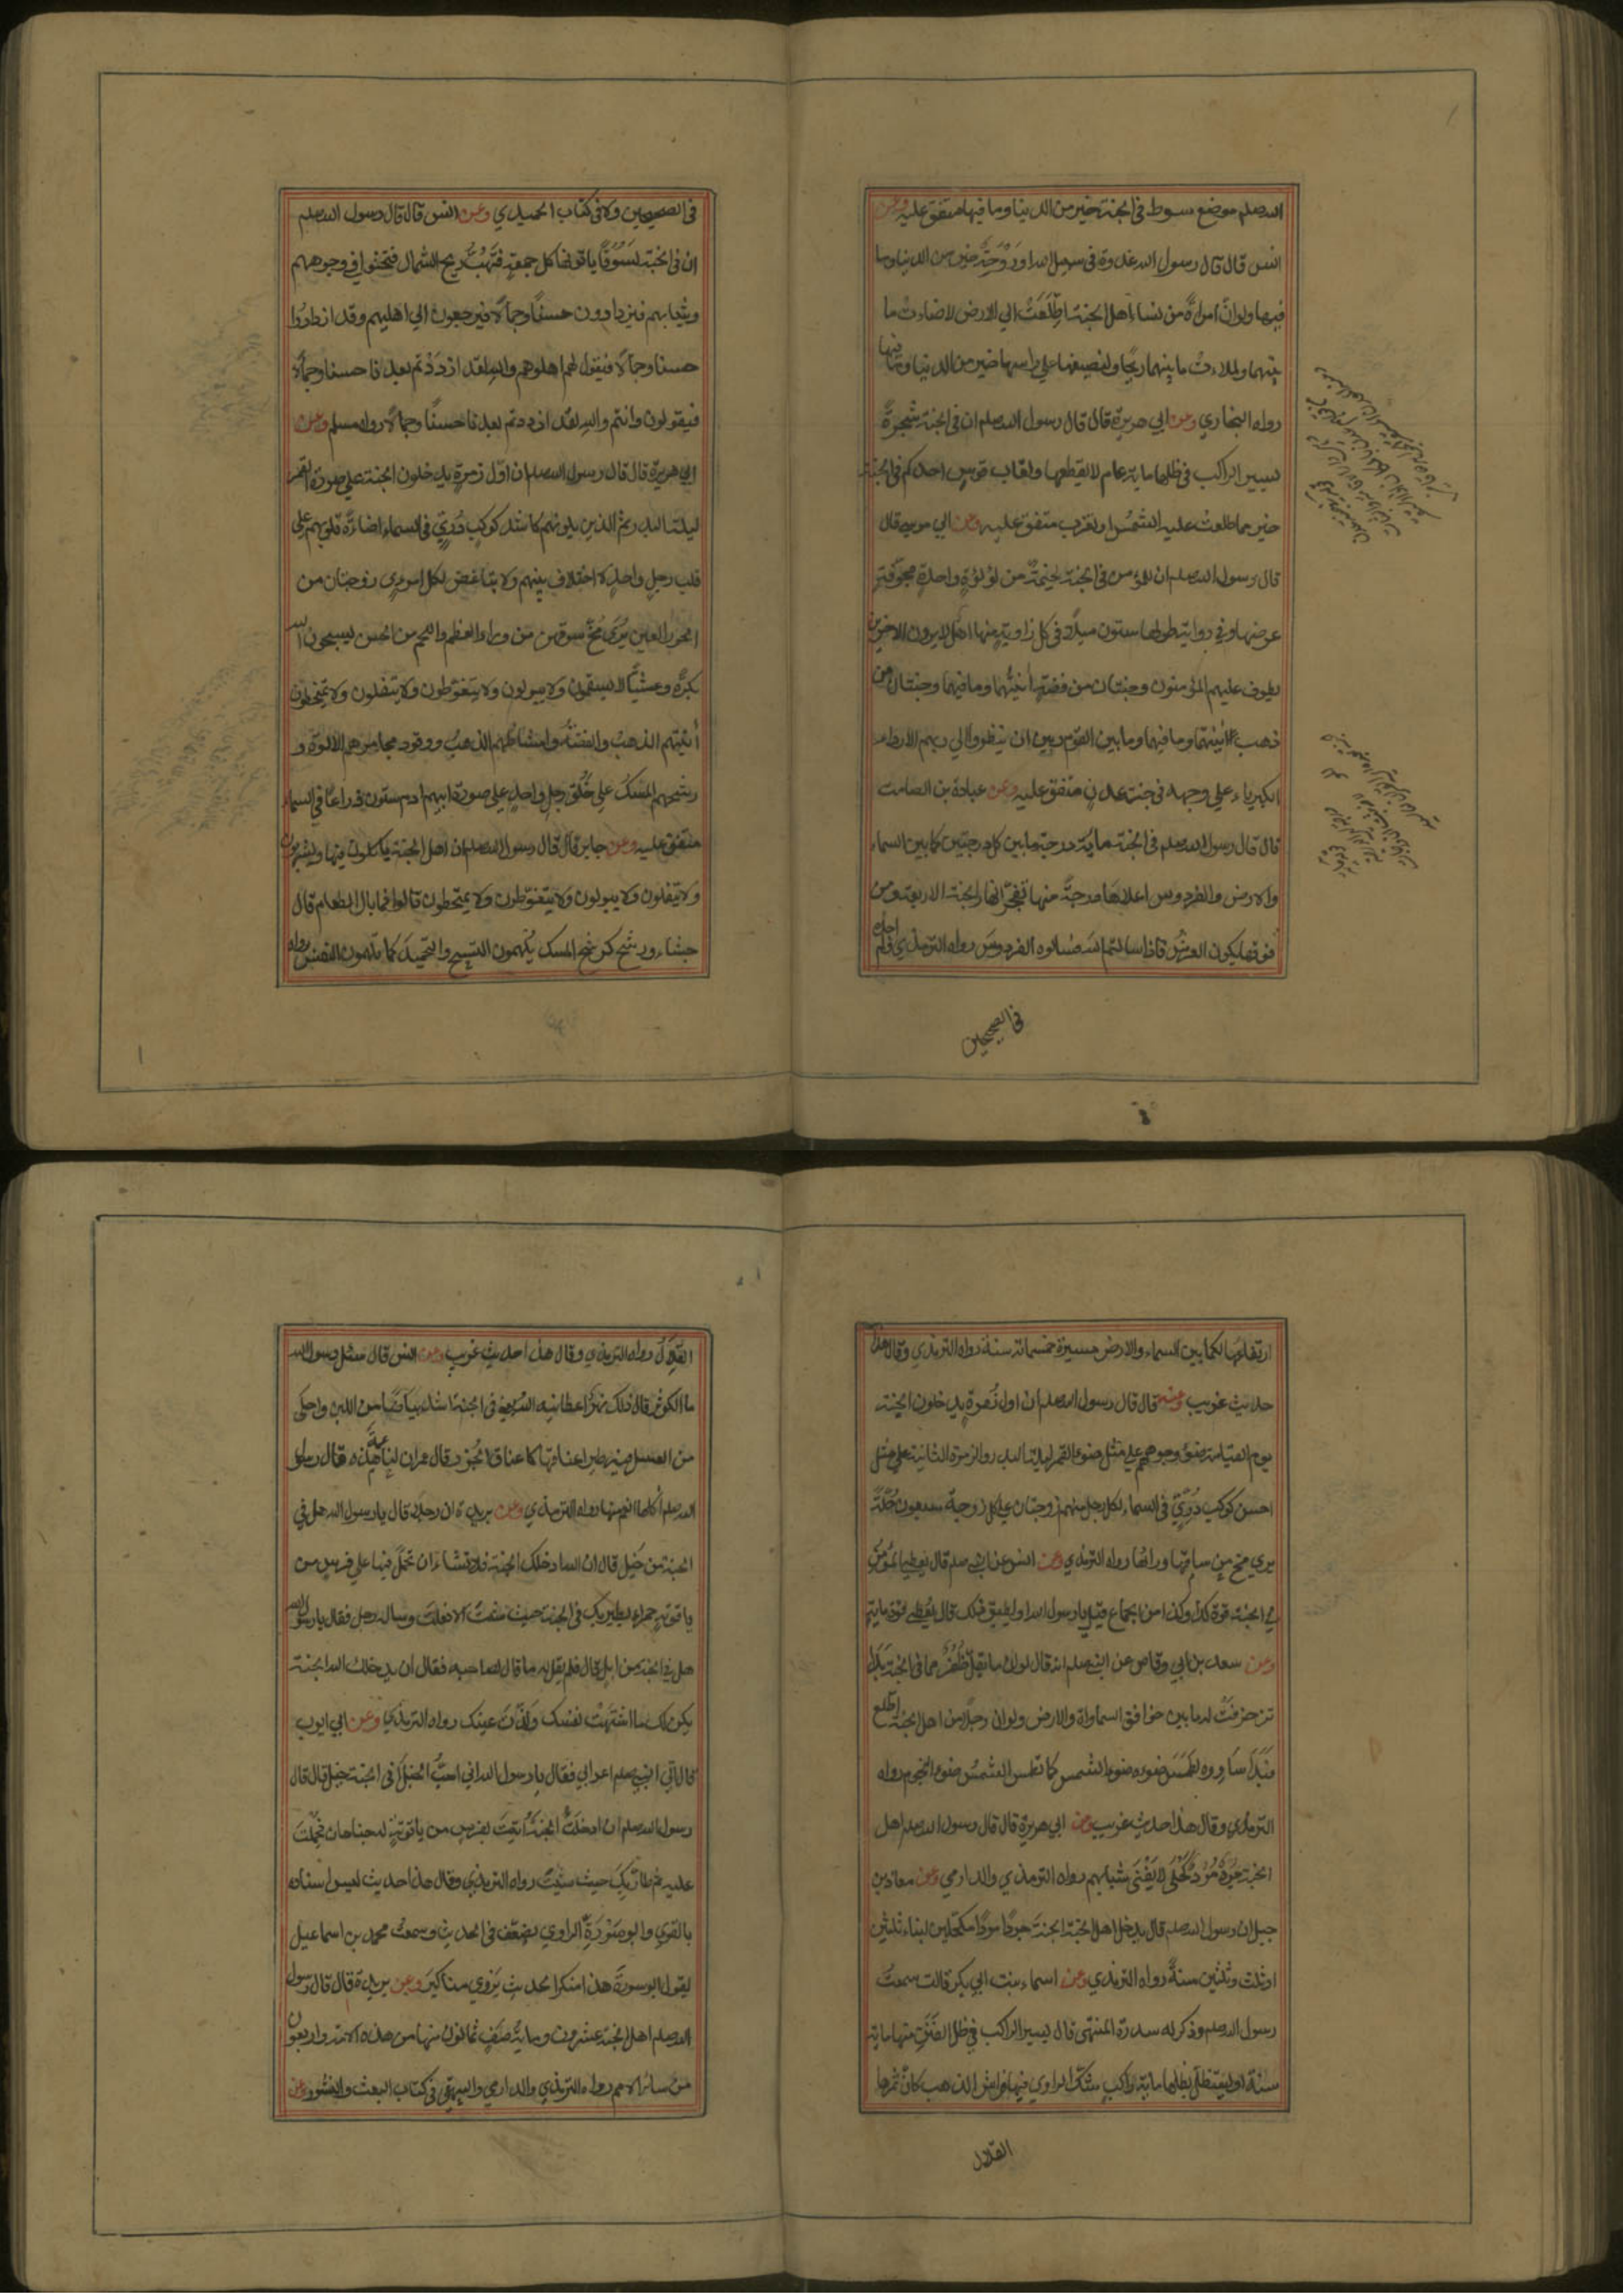 الله صلعم موضع سوط في الجنة خير من الدنيا وما فيها متفق عليه وعن
انس قال قال رسول الله غدوة في سبيل الله او روحة خير من الدنيا وما
فيها ولو انّ امراةً من نساء اهل الجنة اطّلعَتْ الي الارض لاضاءت ما
بينهما ولملاءت ما بينهما ريحًا ولنصيفها علي راسها خير من الدنيا وما فيها
رواه البخاري وعن ابي هريرة قال قال رسول الله صلعم ان في الجنة شجرةً
يسير الراكب في ظلها ماية عام لا يقطعها ولقاب قوس احدكم في الجنة
خير مما طلعت عليه الشمس او تغرب متفق عليه وعن ابي موسي قال
قال رسول الله صلعم ان للمؤمن في الجنة لخيمةً من لؤلؤةٍ واحدةٍ مجوّفةٍ
عرضها وفي رواية طولها ستون ميلًا في كل زاوية منها اهل لا يرون الاخرين
يطوف عليهم المؤمنون وجنتان من فضةٍ آنيتهما وما فيهما وجنتان من
ذهب آنيتهما وما فيهما وما بين القوم وبين ان ينظروا الي ربهم الا رداء
الكبرياء علي وجهه في جنة عدن متفق عليه وعن عبادة بن الصامت
قال قال رسول الله صلعم في الجنة ماية درجة ما بين كل درجتين كما بين السماء
والارض والفردوس اعلاها درجةً منها تفجّر انهار الجنة الاربعة ومن
فوقها يكون العرش فاذا سالتم الله فسالوه الفردوس رواه الترمذي ولم اجده
في الصحيحين
في الصحيحين ولا في كتاب الحميدي وعن انس قال قال رسول الله صلعم
ان في الجنة لسوقًا ياتونها كل جمعةٍ فتهبّ ريح الشمال فتحثوا في وجوههم
وثيابهم فيزدادون حسنًا وجمالًا فيرجعون الي اهليهم وقد ازدادوا
حسنا وجمالًا فيقول لهم اهلوهم والله لقد ازددتم بعدنا حسنا وجمالًا
فيقولون وانتم والله لقد ازددتم بعدنا حسنًا وجمالًا رواه مسلم وعن
ابي هريرة قال قال رسول الله صلعم ان اوّل زمرةٍ يدخلون الجنة علي صورة القمر
ليلة البدر ثم الذين يلونهم كاشد كوكب دُرّيّ في السماء اضاءة قلوبهم علي
قلب رجلٍ واحدٍ لا اختلاف بينهم ولا تباغض لكل امرئٍ زوجتان من
الحور العين يُرى مُخّ سوقهن من وراء العظم واللحم من الحسن يسبحون الله
بكرةً وعشيًّا لا يسقمون ولا يبولون ولا يتغوّطون ولا يتفلون ولا يتمخطون
آنيتهم الذهب والفضة وامشاطهم الذهب ووقود مجامرهم الالوّة و
رشحهم المسك علي خُلُق رجلٍ واحدٍ علي صورة ابيهم ادم ستون ذراعًا في السماء
متفق عليه وعن جابر قال قال رسول الله صلعم ان اهل الجنة ياكلون فيها ويشربون
ولا يتفلون ولا يبولون ولا يتغوّطون ولا يمتخطون قالوا فما بال الطعام قال
جشاء ورشح كرشح المسك يُلهمون التسبيح والتحميد كما تلهمون النفس رواه
ارتفاعها لكما بين السماء والارض مسيرة خمسمائة سنة رواه الترمذي وقال هذا
حديث غريب وعنه قال قال رسول الله صلعم ان اول زمرة يدخلون الجنة
يوم القيامة ضوء وجوههم علي مثل ضوء القمر ليلة البدر والزمرة الثانية علي مثل
احسن كوكب دُرّيّ في السماء لكل رجل منهم زوجتان علي كل زوجة سبعون حُلّةً
يري مخ من ساقها ورائها رواه الترمذي وعن انس عن النبي صلعم قال يعطي المؤمن
في الجنة قوة كذا وكذا من الجماع قيل يا رسول الله او يطيق ذلك قال يُعطي قوة ماية
وعن سعد بن ابي وقاص عن النبي صلعم انه قال لو ان ما يقلّ ظُفُر مما في الجنة بَدَا
تزخرفت له ما بين خوافق السماوات والارض ولو ان رجلًا من اهل الجنة اطّلع
فبدا ساوره لطمس ضوءه ضوء الشمس كما تطمس الشمس ضوء النجوم رواه
الترمذي وقال هذا حديث غريب وعن ابي هريرة قال قال رسول الله صلعم اهل
الجنة جُردٌ مُردٌ كَحْلَى لا يَفْنَى شبابهم رواه الترمذي والدارمي وعن معاذ بن
جبل ان رسول الله صلعم قال يدخل اهل الجنة الجنة جردًا مردًا مكحلين ابناء ثلثين
او ثلث وثلثين سنةً رواه الترمذي وعن اسماء بنت ابي بكر قالت سمعت
رسول الله صلعم وذكر له سدرة المنتهى قال يسير الراكب في ظل الفنن منها ماية
سنة او يستظلّ بظلها ماية راكب شكّ الراوي فيها فراش الذهب كانّ ثمرها
القلال
القلال رواه الترمذي وقال هذا حديث غريب وعن انس قال سئل رسول الله
ما الكوثر قال ذلك نهرٌ اعطانيه الله يعني في الجنة اشد بياضًا من اللبن واحلى
من العسل فيه طير اعناقها كاعناق الجُزر قال عمر ان هذه لناعمة قال رسول
الله صلعم أكلها انعم منها رواه الترمذي وعن بريدة ان رجلًا قال يا رسول الله هل في
الجنة من خيل قال ان الله ادخلك الجنة فلا تشاء ان تحمل فيها علي فرس من
ياقوتةٍ حمراء يطير بك في الجنة حيث شئت الا فعلت وساله رجل فقال يا رسول الله
هل في الجنة من ابل قال فلم يقل له ما قال لصاحبه فقال ان يدخلك الله الجنة
يكن لك ما اشتهت نفسك ولذّت عينك رواه الترمذي وعن ابي ايوب
قال اتي النبي صلعم اعرابي فقال يا رسول الله اني احبّ الخيل أفي الجنة خيل قال قال
رسول الله صلعم ان ادخلت الجنة أتيت بفرس من ياقوتةٍ له جناحان فحملت
عليه ثم طار بك حيث شئت رواه الترمذي وقال هذا حديث ليس اسناده
بالقوي وابو سورة الراوي يضعّف في الحديث وسمعت محمد بن اسماعيل
يقول ابو سورة هذا منكر الحديث يَروي مناكير وعن بريدة قال قال رسول
الله صلعم اهل الجنة عشرون وماية صفٍ ثمانون منها من هذه الامة واربعون
من سائر الامم رواه الترمذي والدارمي والبيهقي في كتاب البعث والنشور وعن